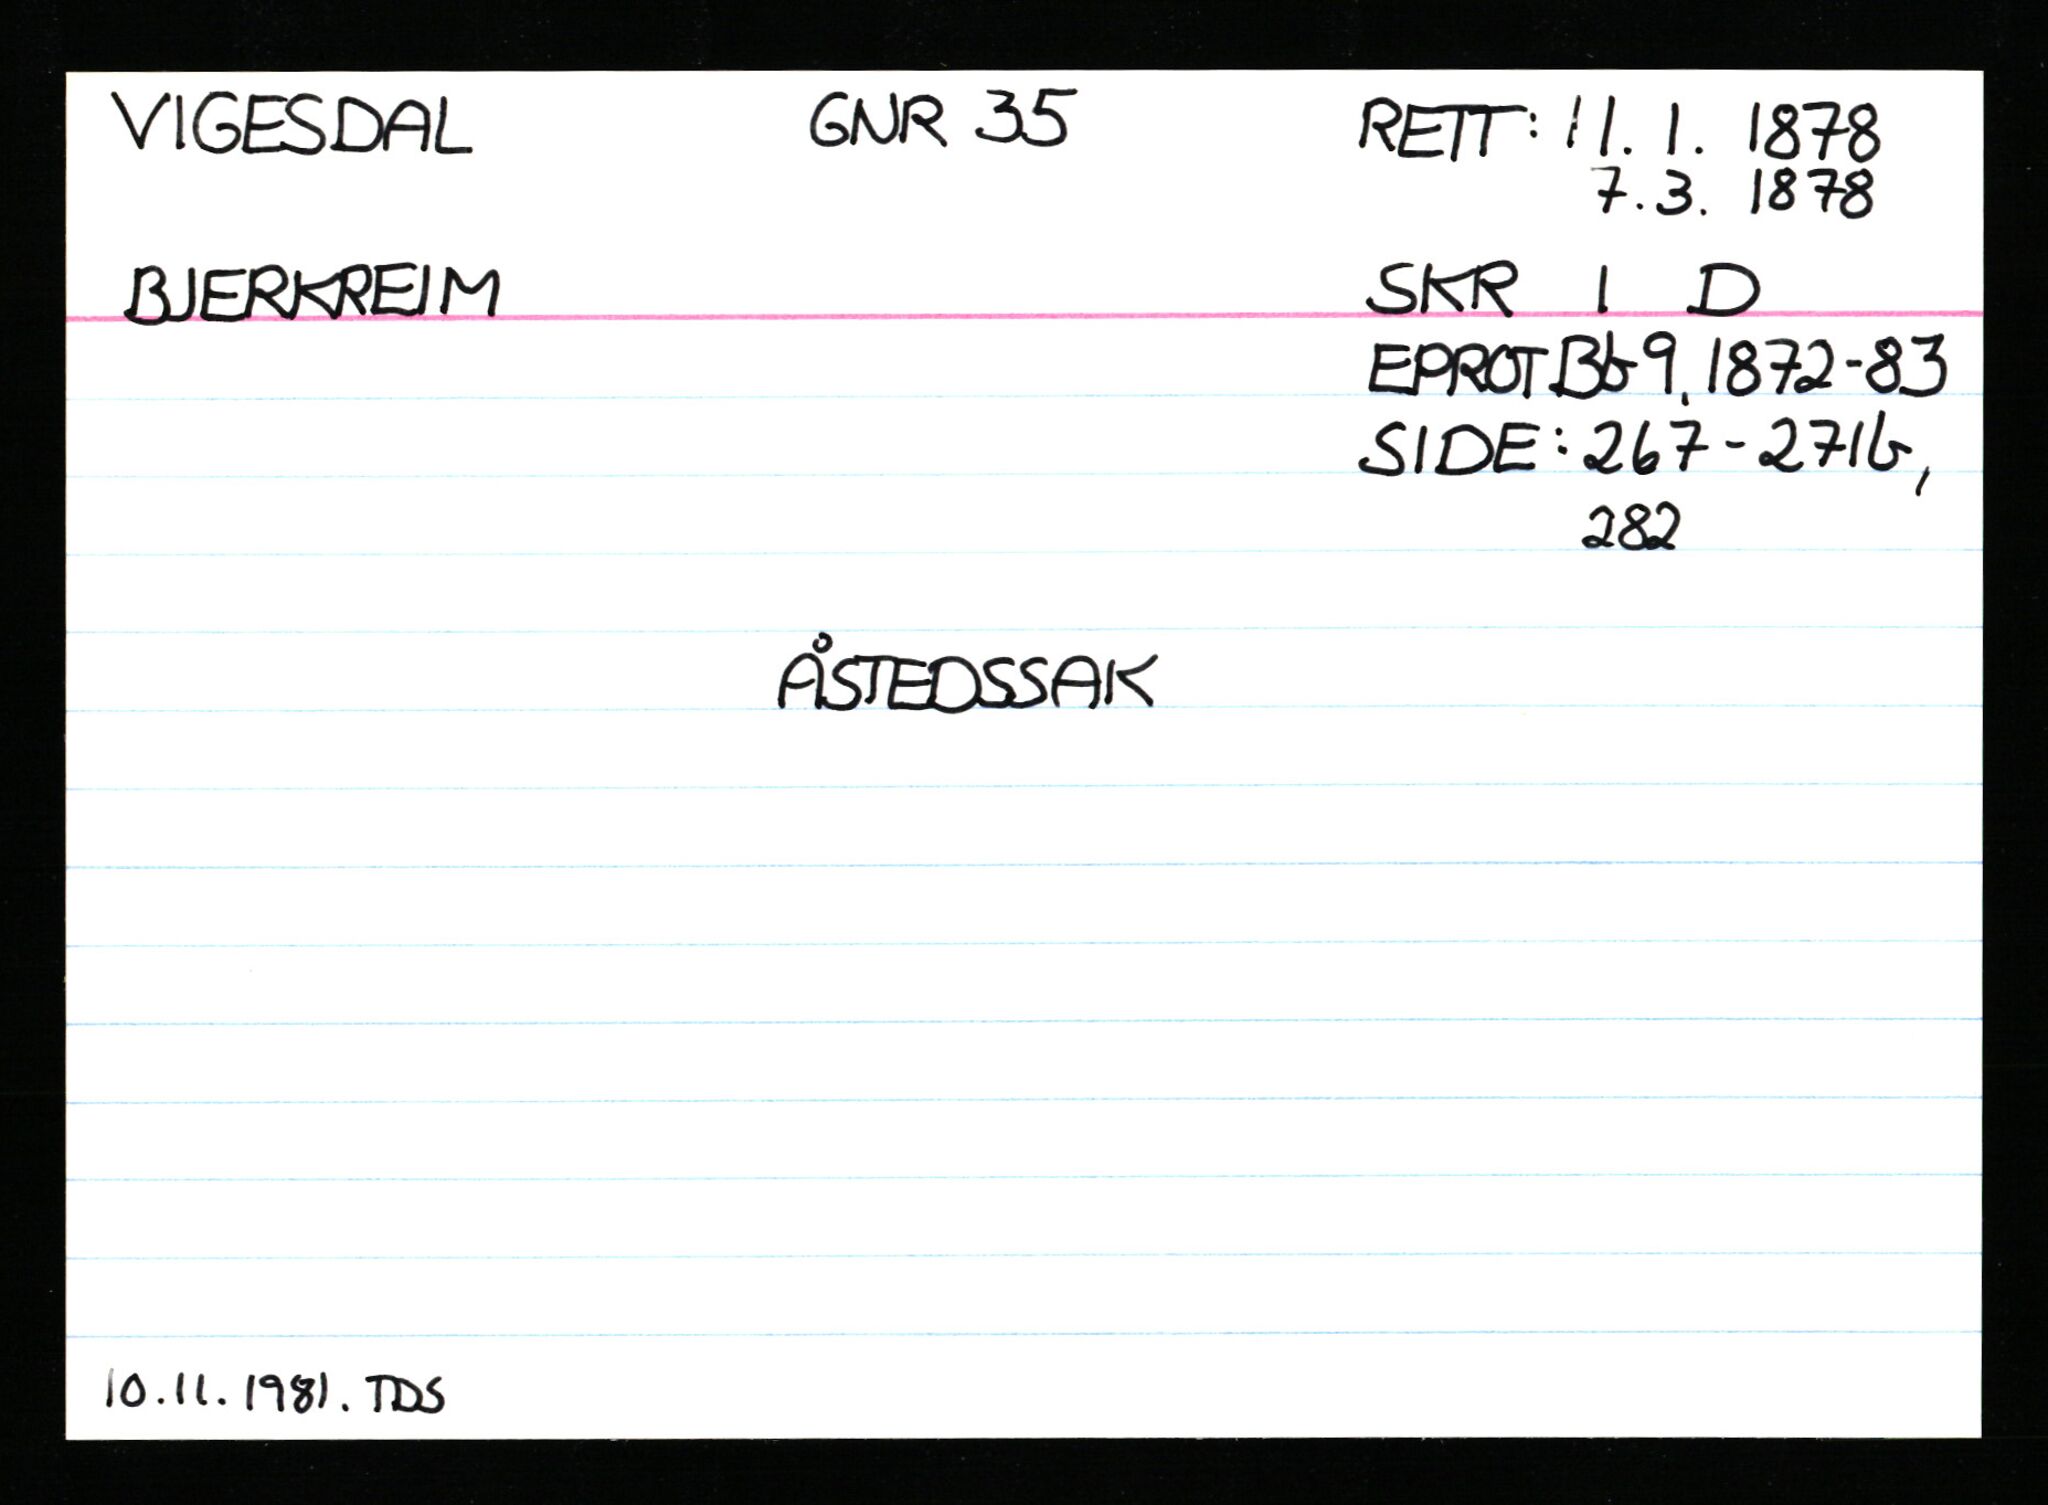 VIGESDAL GNR 35 RETT: 11. 1. 1878
7.3. 1878
BJERKREIM SKR I D
EPROT Bb 9, 1872-83
SIDE: 267 - 271b,
282
ÅSTEDSSAK
10.11.1981. TDS